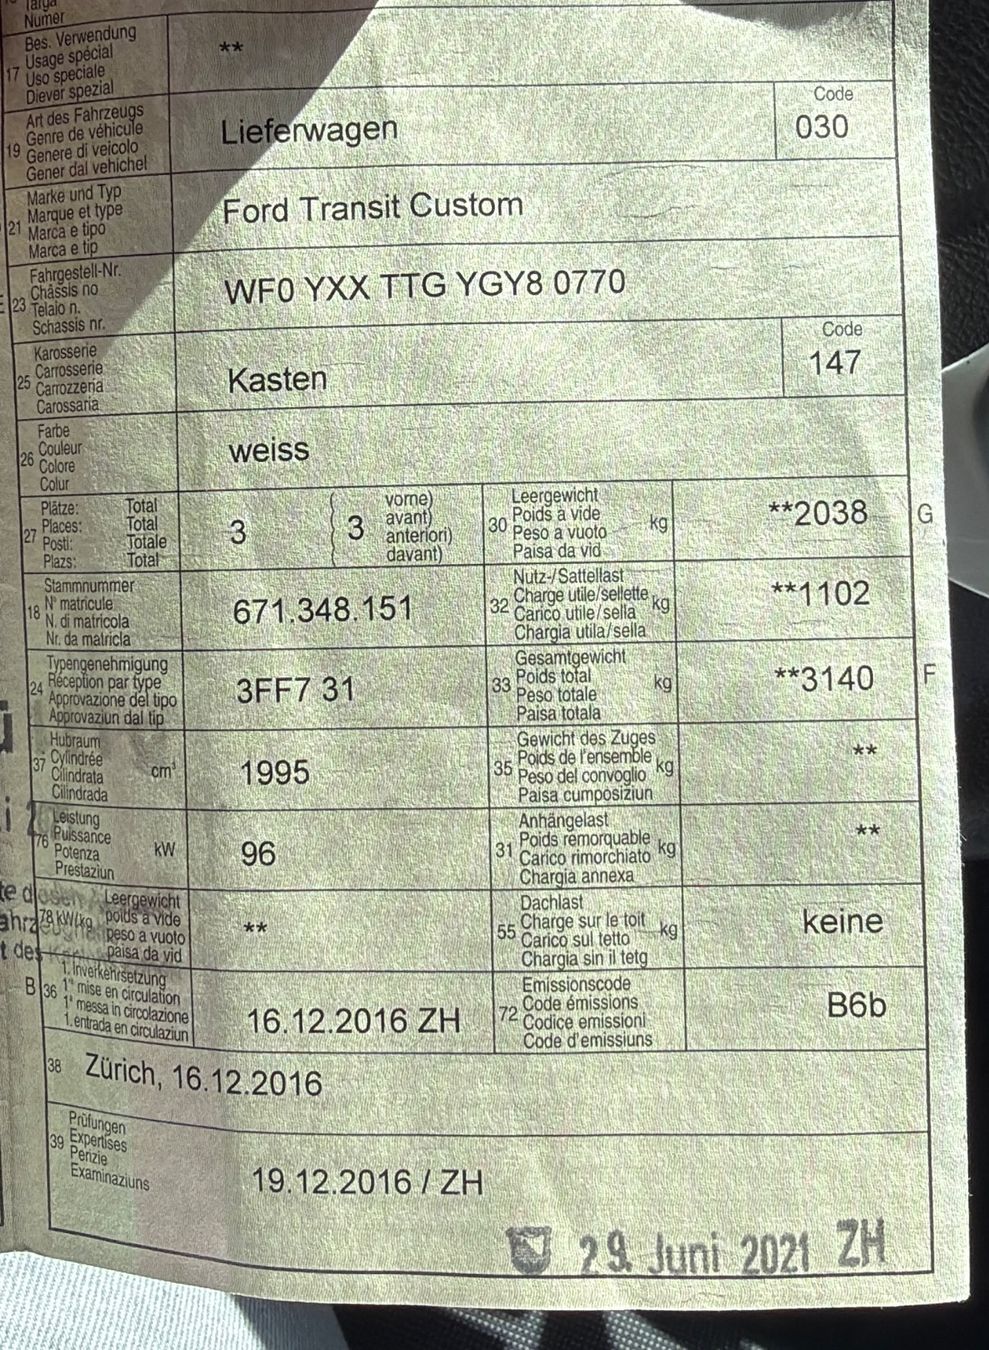 Targa
Numer
17 Bes. Verwendung
Usage spécial
Uso speciale
Diever spezial
**
19 Art des Fahrzeugs
Genre de véhicule
Genere di veicolo
Gener dal vehichel
Lieferwagen
Code
030
21 Marke und Typ
Marque et type
Marca e tipo
Marca e tip
Ford Transit Custom
23 Fahrgestell-Nr.
Châssis no
Telaio n.
Schassis nr.
WF0 YXX TTG YGY8 0770
25 Karosserie
Carrosserie
Carrozzeria
Carossaria
Kasten
Code
147
26 Farbe
Couleur
Colore
Colur
weiss
27 Plätze: Total
Places: Total
Posti: Totale
Plazs: Total
3
3 vorne)
avant)
anteriori)
davant)
30 Leergewicht
Poids à vide
Peso a vuoto
Paisa da vid
kg
**2038
G
18 Stammnummer
N° matricule
N. di matricola
Nr. da matricla
671.348.151
32 Nutz-/Sattellast
Charge utile/sellette
Carico utile/sella
Chargia utila/sella
kg
**1102
24 Typengenehmigung
Réception par type
Approvazione del tipo
Approvaziun dal tip
3FF7 31
33 Gesamtgewicht
Poids total
Peso totale
Paisa totala
kg
**3140
F
37 Hubraum
Cylindrée
Cilindrata
Cilindrada
cm³
1995
35 Gewicht des Zuges
Poids de l'ensemble
Peso del convoglio
Paisa cumposiziun
kg
**
76 Leistung
Puissance
Potenza
Prestaziun
kW
96
31 Anhängelast
Poids remorquable
Carico rimorchiato
Chargia annexa
kg
**
78 kW/kg Leergewicht
poids à vide
peso a vuoto
paisa da vid
**
55 Dachlast
Charge sur le toit
Carico sul tetto
Chargia sin il tetg
kg
keine
B 36 1. Inverkehrsetzung
1re mise en circulation
1a messa in circolazione
1. entrada en circulaziun
16.12.2016 ZH
72 Emissionscode
Code émissions
Codice emissioni
Code d'emissiuns
B6b
38 Zürich, 16.12.2016
39 Prüfungen
Expertises
Perizie
Examinaziuns
19.12.2016 / ZH
29. Juni 2021 ZH